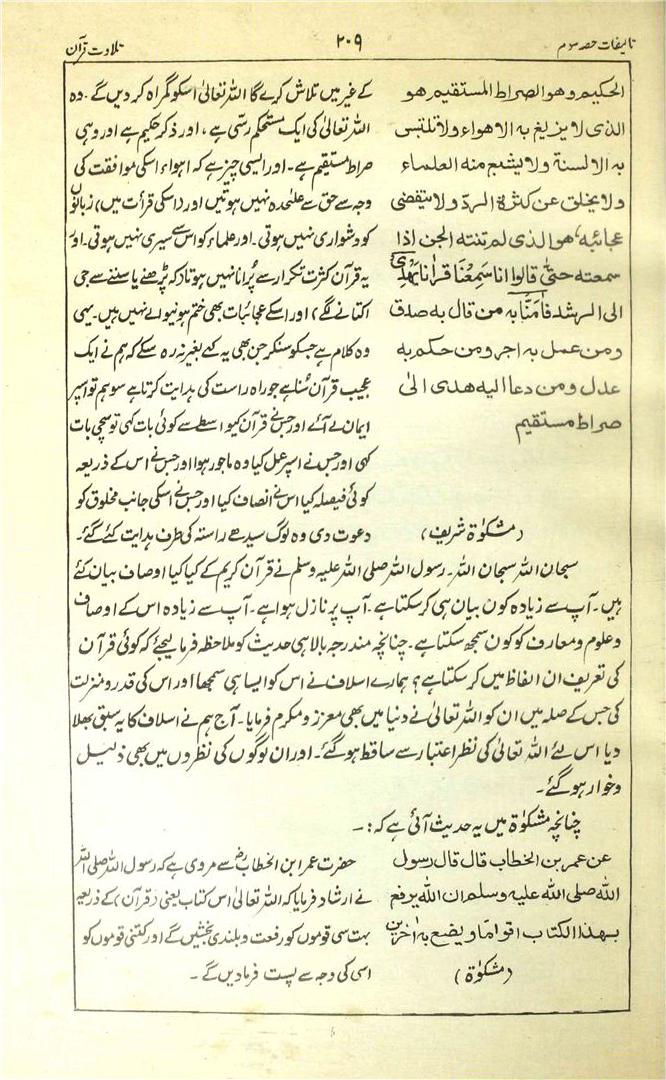 تالیفات حصہ سوم
۲۰۹
تلاوت قرآن
الحکیم وھو الصراط المستقیم ھو
الذی لا یزیغ بہ الاھواء ولا تلتبس
بہ الالسنۃ ولا یشبع منہ العلماء
ولا یخلق عن کثرۃ الردّ ولا یتقضی
عجائبہ، ھو الذی لم تنتہ الجن اذا
سمعتہ حتّٰی قالوا انا سَمِعْنَا قراٰنا یَّھْدِیْ
الی الرشد فاٰمَنَّا بہ من قال بہ صدق
ومن عمل بہ اجر ومن حکم بہ
عدل ومن دعا الیہ ھدی الیٰ
صراط مستقیم
(مشکوٰۃ شریف)
کے غیر میں تلاش کرے گا اللہ تعالیٰ اسکو گمراہ کردیں گے۔ وہ
اللہ تعالیٰ کی ایک مستحکم رسّی ہے، اور ذکر حکیم ہے اور وہی
صراط مستقیم ہے۔ اور ایسی چیز ہے کہ اہواء اسکی موافقت کی
وجہ سے حق سے علٰحدہ نہیں ہوتیں اور (اسکی قرأت میں) زبانوں
کو دشواری نہیں ہوتی۔ اور علماء کو اس سے سیری نہیں ہوتی۔ اور
یہ قرآن کثرت تکرار سے پُرانا نہیں ہوتا (کہ پڑھنے یا سننے سے جی
اکتانے لگے) اور اسکے عجائبات بھی ختم ہونیوالے نہیں ہیں۔ یہی
وہ کلام ہے جسکو سنکر جن بھی یہ کہے بغیر نہ رہ سکے کہ ہم نے ایک
عجیب قرآن سُنا ہے جو راہ راست کی ہدایت کرتا ہے سو ہم تو اسپر
ایمان لے آئے اور جس نے قرآن کیواسطے سے کوئی بات کہی تو سچی بات
کہی اور جس نے اسپر عمل کیا وہ ماجور ہوا اور جس نے اس کے ذریعہ
کوئی فیصلہ کیا اس نے انصاف کیا اور جس نے اسکی جانب مخلوق کو
دعوت دی وہ لوگ سیدھے راستہ کی طرف ہدایت کئے گئے۔
سبحان اللہ سبحان اللہ۔ رسول اللہ صلی اللہ علیہ وسلم نے قرآن کریم کے کیا کیا اوصاف بیان کئے
ہیں۔ آپ سے زیادہ کون بیان ہی کرسکتا ہے۔ آپ پر نازل ہوا ہے۔ آپ سے زیادہ اس کے اوصاف
و علوم و معارف کو کون سمجھ سکتا ہے۔ چنانچہ مندرجہ بالا ہی حدیث کو ملاحظہ فرمالیجئے کہ کوئی قرآن
کی تعریف ان الفاظ میں کرسکتا ہے؟ ہمارے اسلاف نے اس کو ایسا ہی سمجھا اور اس کی قدر و منزلت
کی جس کے صلہ میں ان کو اللہ تعالیٰ نے دنیا میں بھی معزز و مکرم فرمایا۔ آج ہم نے اسلاف کا یہ سبق بھلا
دیا اس لئے اللہ تعالیٰ کی نظر اعتبار سے ساقط ہوگئے۔ اور ان لوگوں کی نظروں میں بھی ذلیل
و خوار ہوگئے۔
چنانچہ مشکوٰۃ میں یہ حدیث آئی ہے کہ:۔
عن عمر بن الخطاب قال قال رسول
اللہ صلی اللہ علیہ وسلم ان اللہ یرفع
بھٰذا الکتاب اقواماً ویضع بہٖ اٰخرین
(مشکوٰۃ)
حضرت عمر ابن الخطابؓ سے مروی ہے کہ رسول اللہ صلی اللہ
نے ارشاد فرمایا کہ اللہ تعالیٰ اس کتاب یعنی (قرآن) کے ذریعہ
بہت سی قوموں کو رفعت و بلندی بخشیں گے اور کتنی قوموں کو
اسی کی وجہ سے پست فرمادیں گے۔